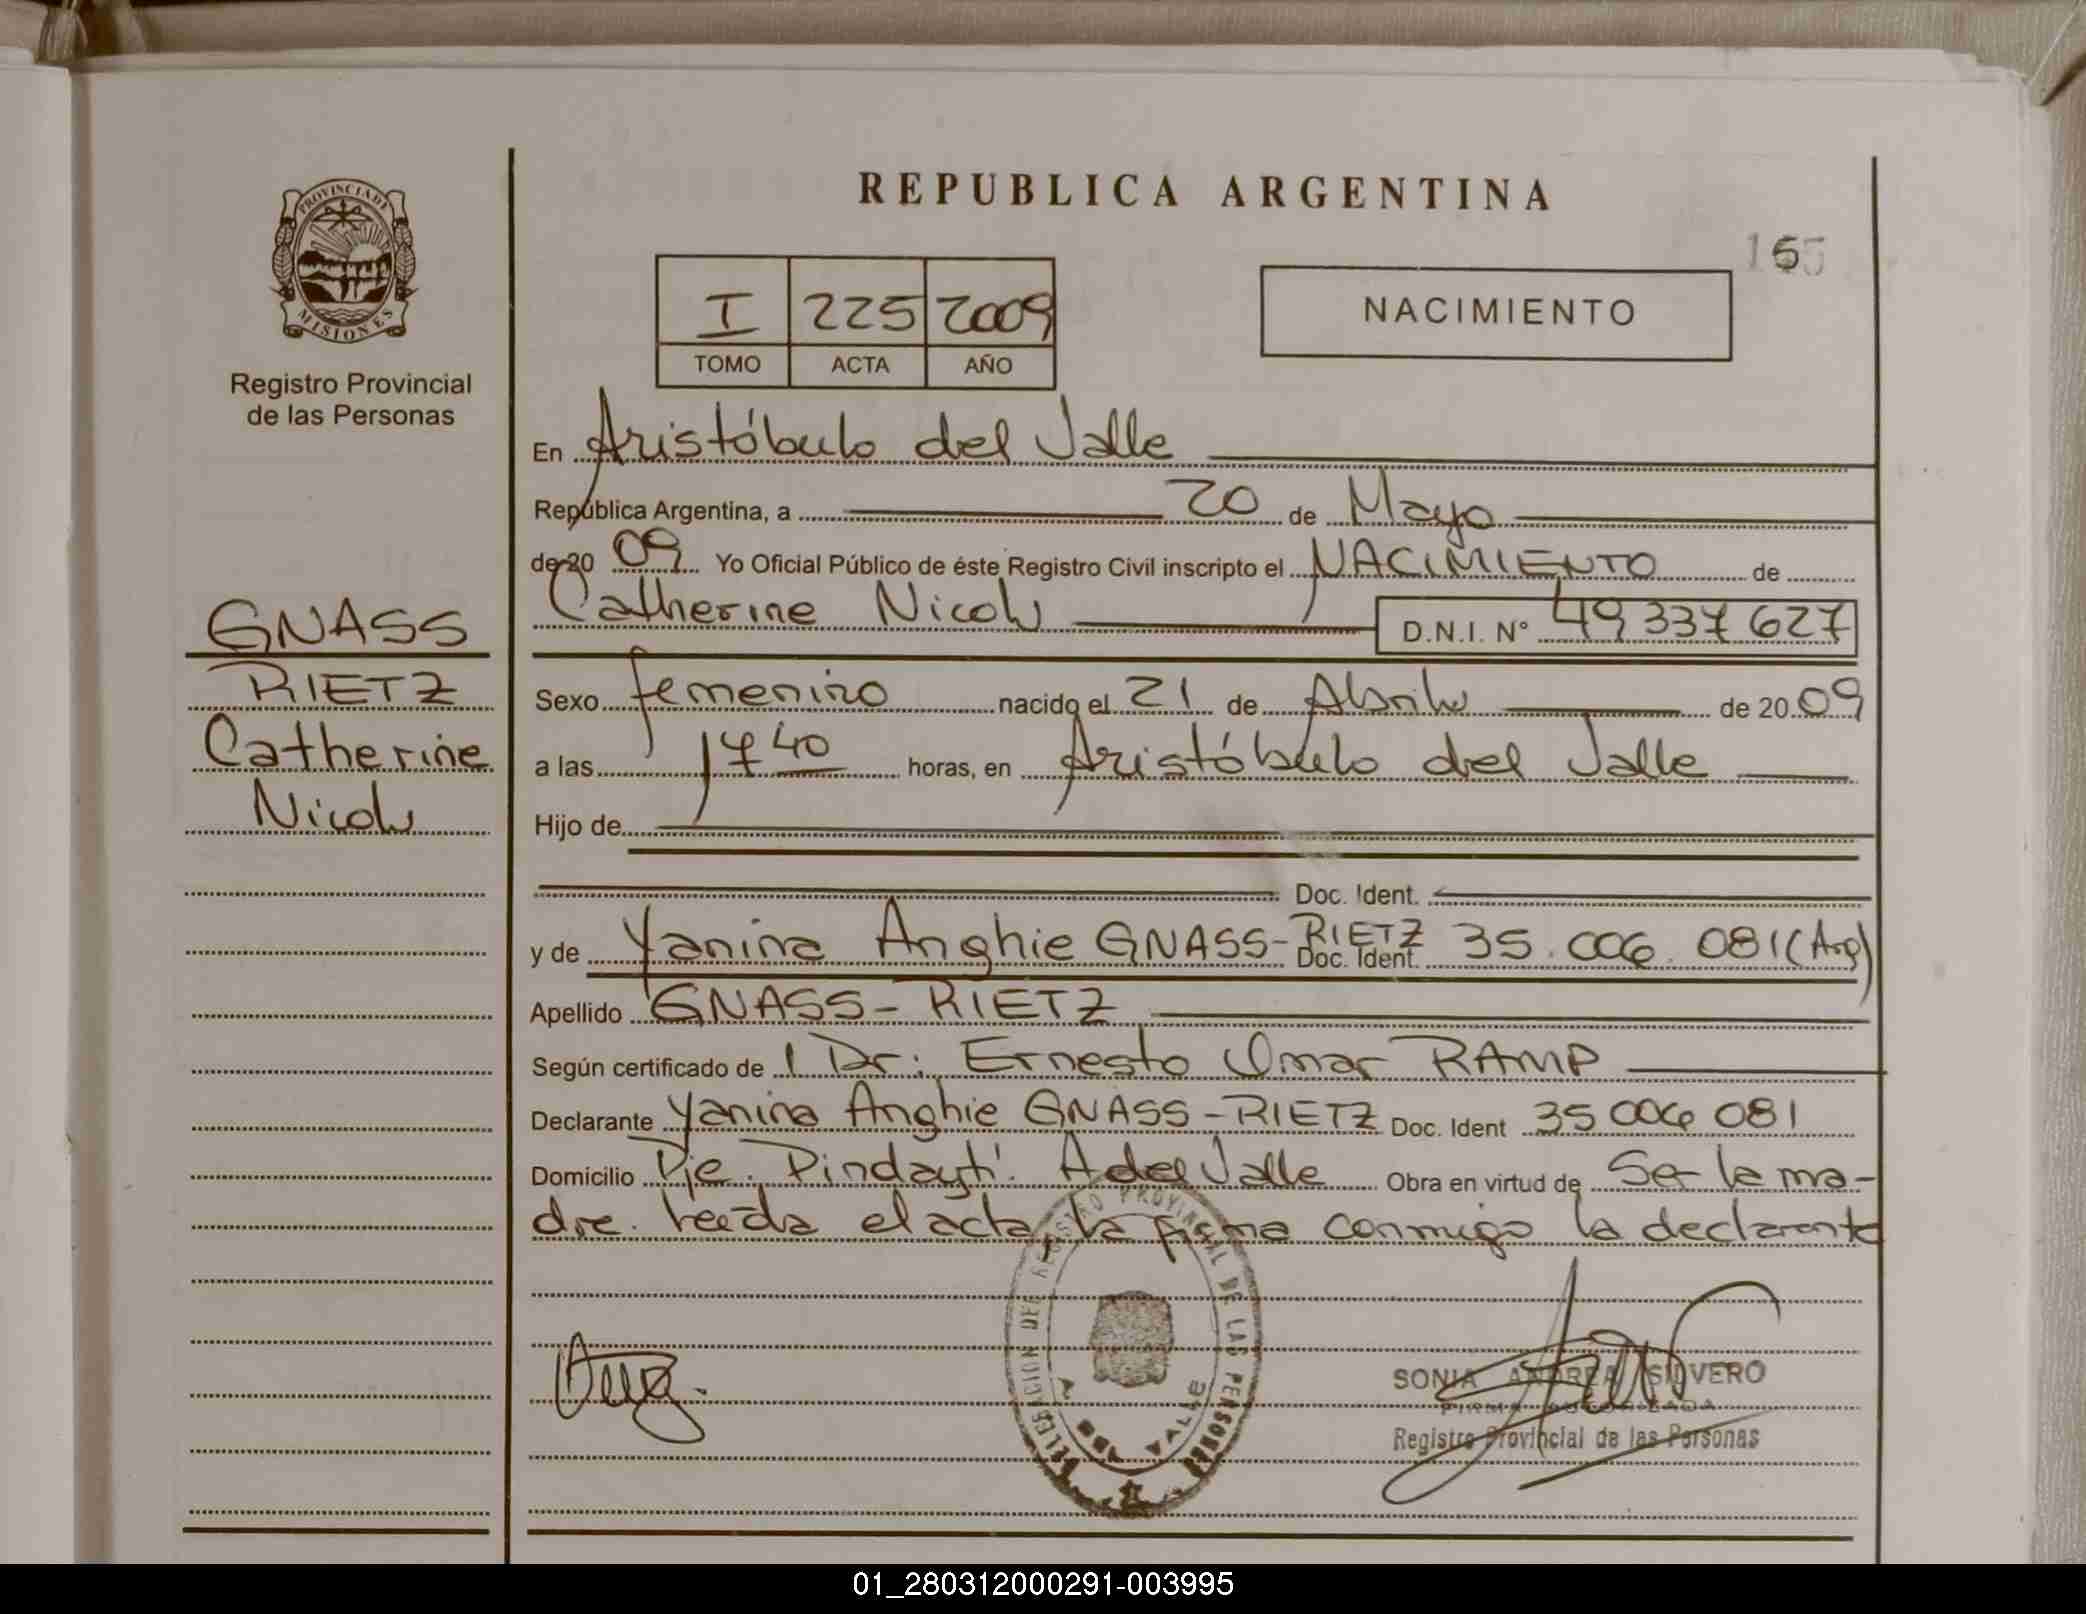 REPUBLICA ARGENTINA
PROVINCIA DE
MISIONES
Registro Provincial
de las Personas
I 225 2009
TOMO ACTA AÑO
NACIMIENTO
165
En Aristóbulo del Valle
República Argentina, a 20 de Mayo
de 20 09 Yo Oficial Público de éste Registro Civil inscripto el NACIMIENTO de
Catherine Nicole D.N.I. Nº 49 337 627
GNASS
RIETZ
Catherine
Nicole
Sexo femenino nacido el 21 de Abril de 20 09
a las 17 40 horas, en Aristóbulo del Valle
Hijo de
Doc. Ident.
y de Yanina Anghie GNASS-RIETZ Doc. Ident. 35.006.081 (Arg)
Apellido GNASS-RIETZ
Según certificado de 1 Dr: Ernesto Omar RAMP
Declarante Yanina Anghie GNASS-RIETZ Doc. Ident 35 006 081
Domicilio Pje. Pindaytí. A del Valle Obra en virtud de Ser la ma-
dre. Leída el acta, la firma conmigo la declarante
DELEGACION DEL REGISTRO PROVINCIAL DE LAS PERSONAS
A. DEL VALLE
SONIA ANDREA SILVERO
FIRMA AUTORIZADA
Registro Provincial de las Personas
01_280312000291-003995